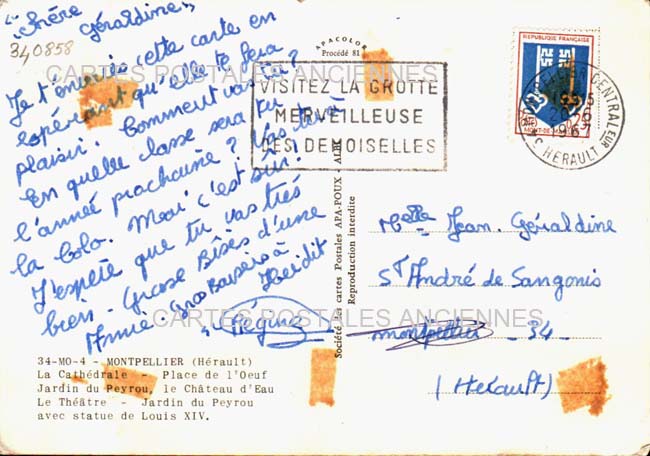 "Chère Géraldine"
340858
Je t'envoie cette carte en
espérant qu'elle te fera
plaisir. Comment vas-tu?
En quelle classe seras tu
l'année prochaine? Vas tu à
la Colo. Moi c'est sûr!
J'espère que tu vas très
bien. Grosse Bises d'une
Amie. Gros Baisers à
"Régine"
APACOLOR
Procédé 81
VISITEZ LA GROTTE
MERVEILLEUSE
DES DEMOISELLES
REPUBLIQUE FRANÇAISE
0,25
MONT-DE-MARSAN
CENTRALE
HERAULT
Société des cartes Postales APA-POUX ALBI
Reproduction interdite
Melle Jean. Géraldine
St André de Sangonis
montpellier - 34 -
(Herault)
34-MO-4 - MONTPELLIER (Hérault)
La Cathédrale - Place de l'Oeuf
Jardin du Peyrou, le Château d'Eau
Le Théâtre - Jardin du Peyrou
avec statue de Louis XIV.
CARTES POSTALES ANCIENNES
CARTES POSTALES ANCIENNES